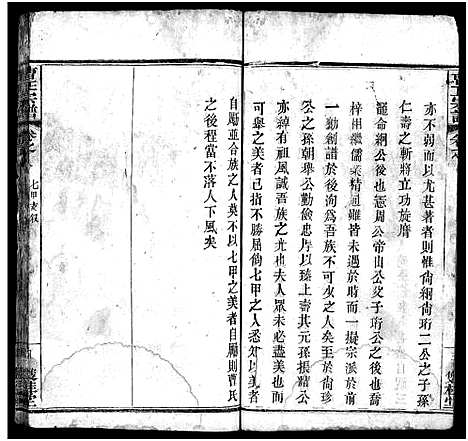 亦不弱而以尤甚著者則惟尙綱尙珩二公之子孫
仁壽之斬將立功旋膺
寵命綱公後也憲周公帝山公父子珩公之後也與
梓相繼儒業精通雖皆未遇於時而一擬宗派於前
一勷創譜於後洵爲吾族不可少之人矣至於尙珍
公之孫朝舉公勤儉忠厚以臻上壽其元孫振耀公
亦綽有祖風誠吾族之尤也夫人眾未必盡美也而
可舉之美者已不勝屈倘七甲之人聞此美亦善知所
自勵並合族之人莫不以七甲之美者自勵則曹氏
之後程當不落人下風矣
曹氏宗譜
卷之
七甲支叙